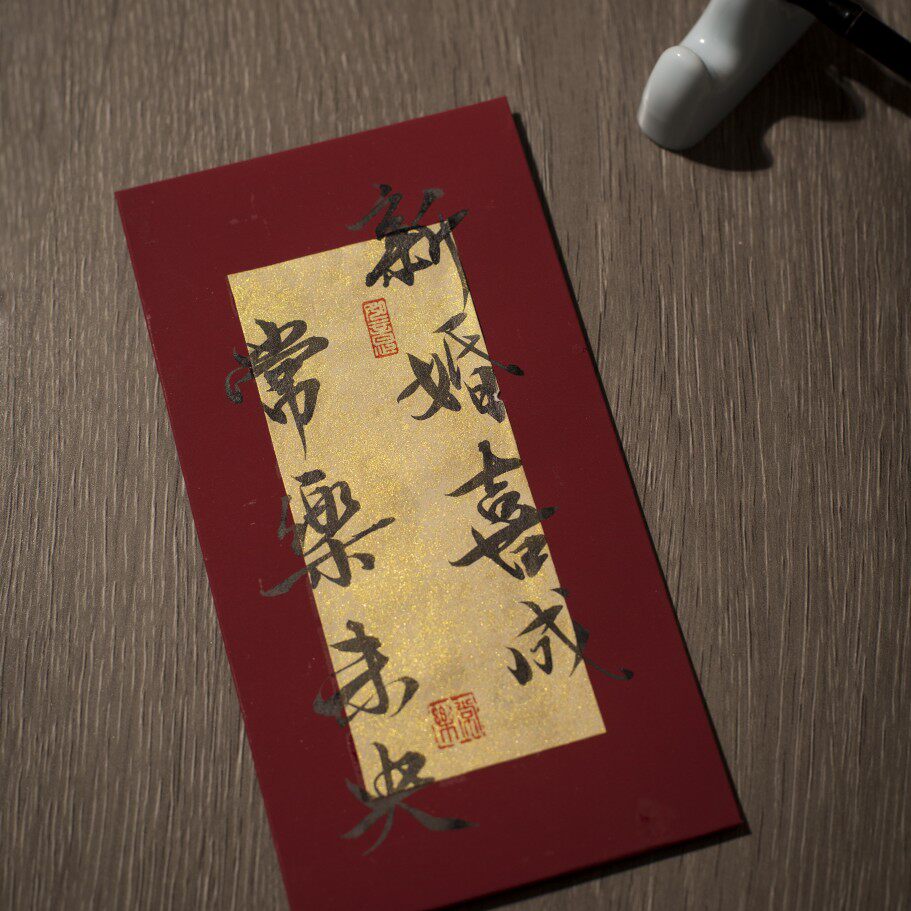 新婚喜成
常樂未央